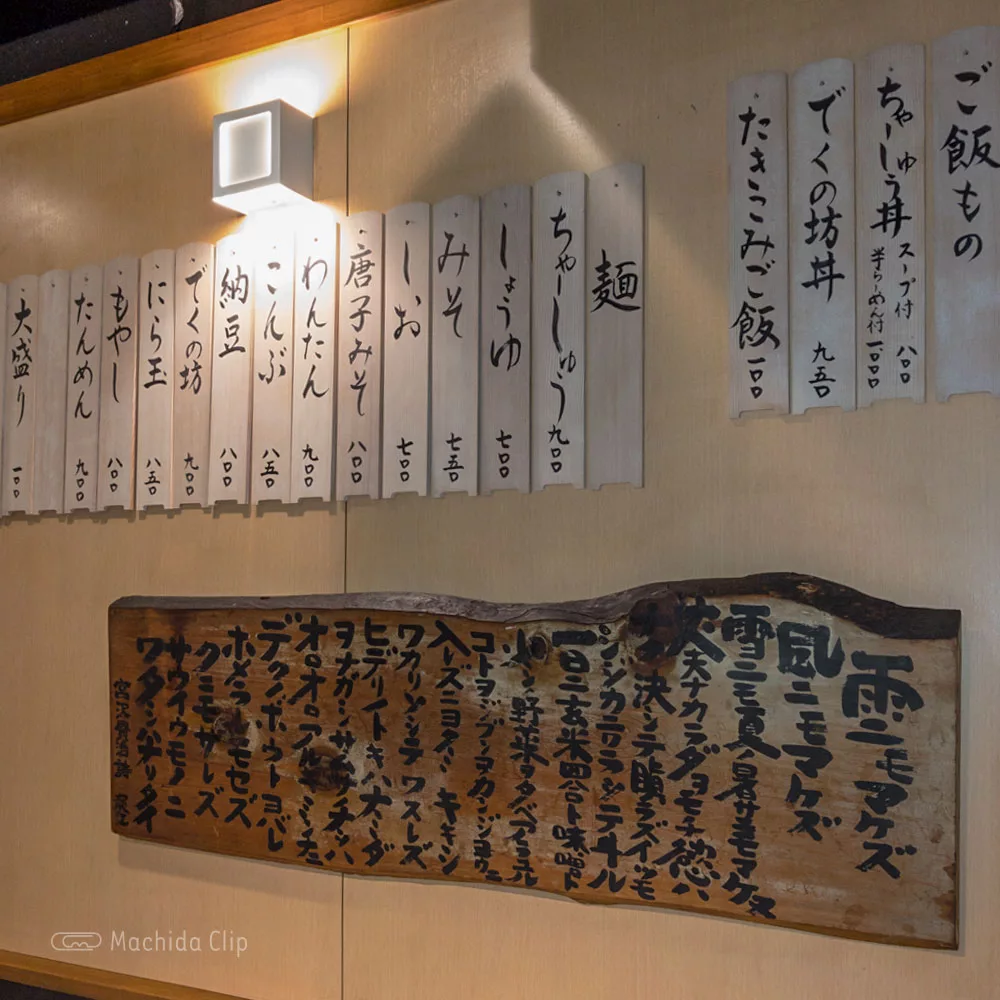 ご飯もの
ちゃーしゅう丼 スープ付 八〇〇
半らーめん付 一〇〇〇
でくの坊丼 九五〇
たきこみご飯 一〇〇
麺
ちゃーしゅう 九〇〇
しょうゆ 七〇〇
みそ 七五〇
しお 七〇〇
唐子みそ 八〇〇
わんたん 九〇〇
こんぶ 八五〇
納豆 八〇〇
でくの坊 九〇〇
にら玉 八五〇
もやし 八〇〇
たんめん 九〇〇
大盛り 一〇〇
雨ニモマケズ
風ニモマケズ
雪ニモ夏ノ暑サニモマケズ
丈夫ナカラダヲモチ慾ハ
ナク決シテ瞋ラズイツモ
シヅカニワラッテヰル
一日ニ玄米四合ト味噌ト
少シノ野菜ヲタベアラユル
コトヲジブンヲカンジョウニ
入レズニヨクミキキシ
ワカリソシテワスレズ
ヒデリノトキハナミダ
ヲナガシサムサノナツハ
オロオロアルキミンナニ
デクノボウトヨバレ
ホメラレモセズ
クニモサレズ
サウイウモノニ
ワタシハナリタイ
Machida Clip